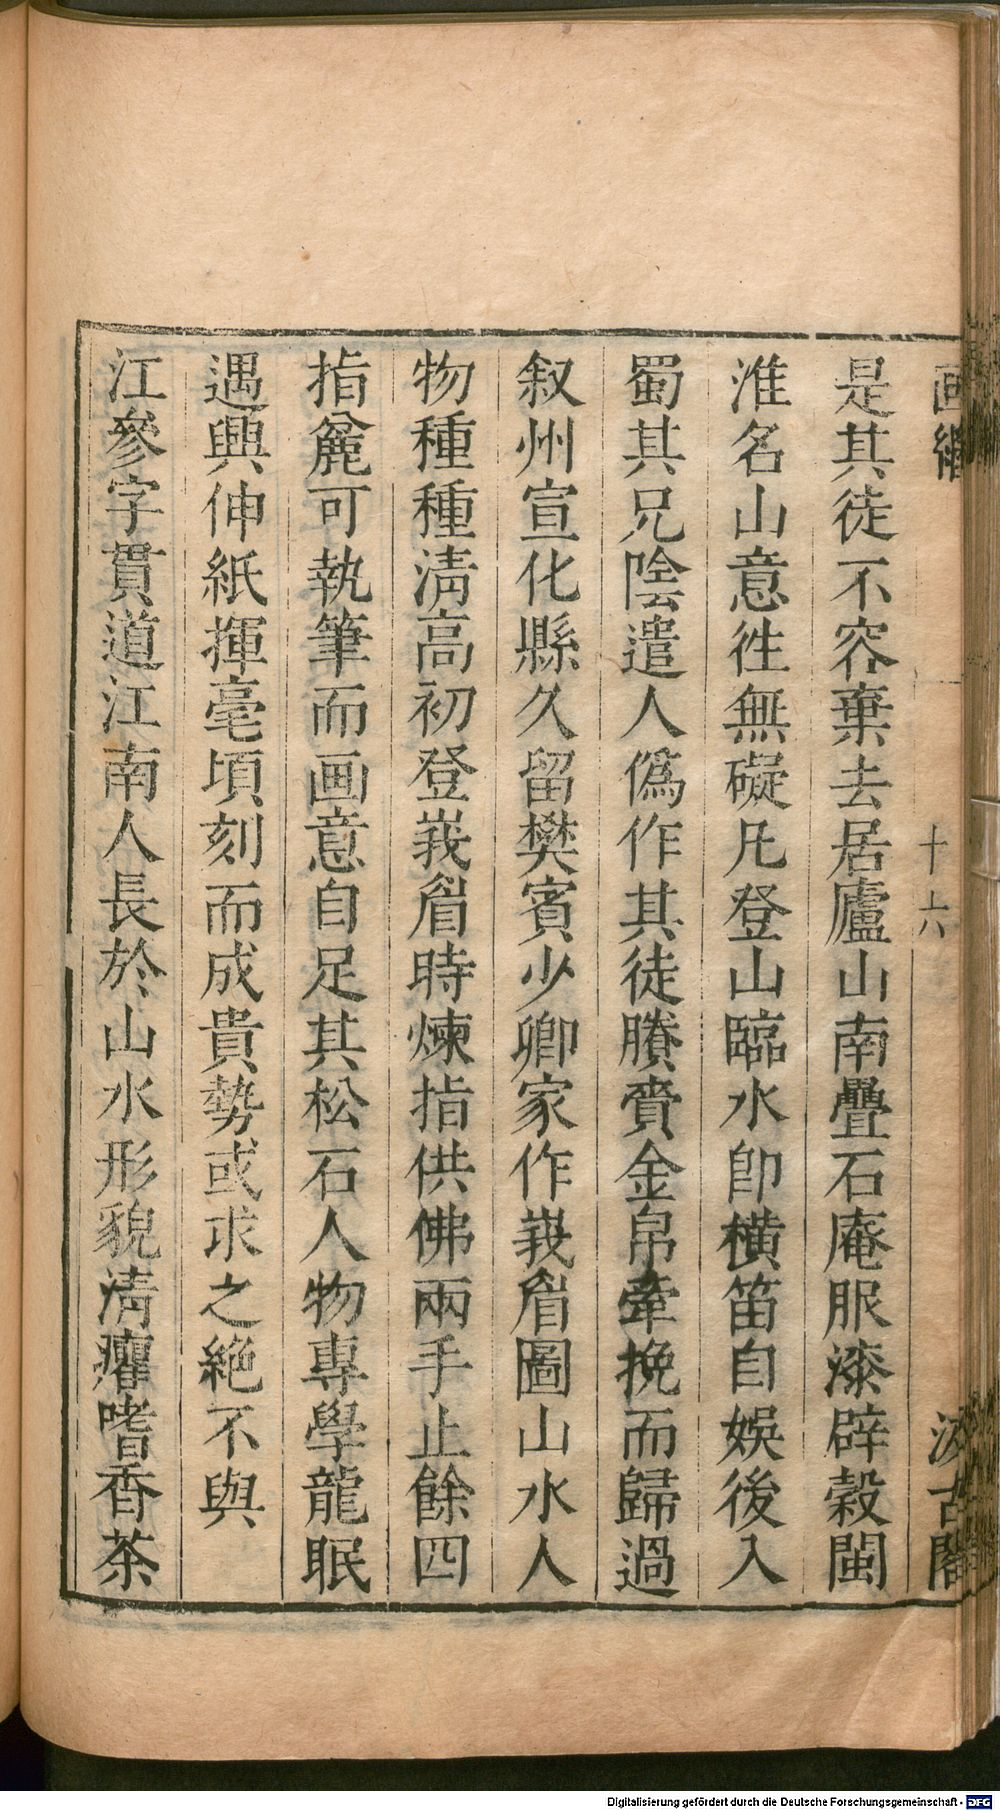 画繼
十六
汲古閣
是其徒不容棄去居廬山南疊石庵服漆辟穀閩
淮名山意徃無礙凡登山臨水卽橫笛自娛後入
蜀其兄陰遣人僞作其徒賸賫金帛牽挽而歸過
叙州宣化縣久留樊賓少卿家作峩眉圖山水人
物種種淸高初登峩眉時煉指供佛兩手止餘四
指麄可執筆而画意自足其松石人物專學龍眠
遇興伸紙揮毫頃刻而成貴勢或求之絶不與
江參字貫道江南人長於山水形貌淸癯嗜香茶
Digitalisierung gefördert durch die Deutsche Forschungsgemeinschaft - DFG